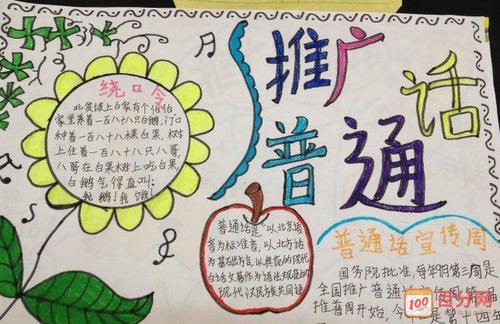 推广
普通话
绕口令
北贫坡上白家有个伯伯
家里养着一百八十八只白鹅,门口
种着一百八十八棵白果,树
上住着一百八十八只八哥
八哥在白果树上吃白果,
白鹅气得直叫:
我鹅!我饿!
普通话是"以北京语
音为标准音,以北方话
为基础方言,以典范的现代
白话文著作为语法规范的
现代汉民族共同语
普通话宣传周
国务院批准,每年9月第三周是
全国推广普通
推普周开始,今
是第十四年
100
百分网